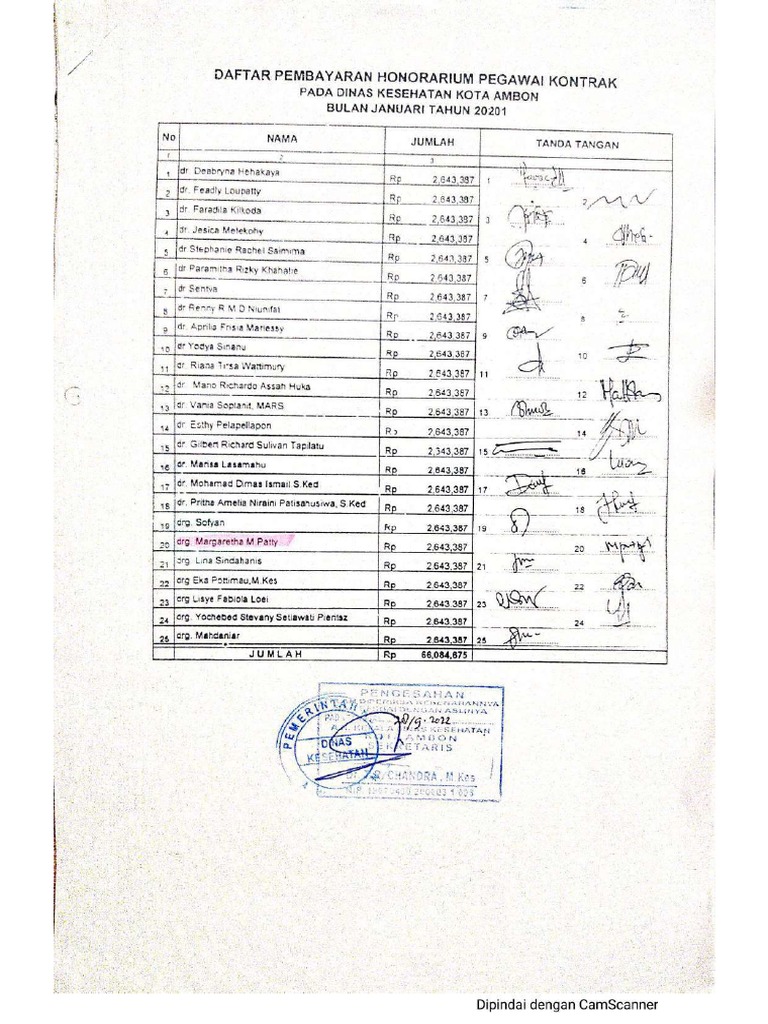 DAFTAR PEMBAYARAN HONORARIUM PEGAWAI KONTRAK
PADA DINAS KESEHATAN KOTA AMBON
BULAN JANUARI TAHUN 20201
No NAMA JUMLAH TANDA TANGAN
1 2 3
1 dr. Deabryna Hehakaya Rp 2,643,387 1
2 dr. Feadly Loupatty Rp 2,643,387 2
3 dr. Faradila Kilkoda Rp 2,643,387 3
4 dr. Jesica Metekohy Rp 2,643,387 4
5 dr Stephanie Rachel Saimima Rp 2,643,387 5
6 dr Paramitha Rizky Khahatie Rp 2,643,387 6
7 dr Sentva Rp 2,643,387 7
8 dr Renny R M D Niunifat Rp 2,643,387 8
9 dr. Aprilia Frisia Mariessy Rp 2,643,387 9
10 dr Yodya Sinanu Rp 2,643,387 10
11 dr. Riana Tirsa Wattimury Rp 2,643,387 11
12 dr. Mario Richardo Assah Huka Rp 2,643,387 12
13 dr. Vania Soplanit, MARS Rp 2,643,387 13
14 dr. Esthy Pelapellapon Rp 2,643,387 14
15 dr. Gilbert Richard Sulivan Tapilatu Rp 2,343,387 15
16 dr. Marisa Lasamahu Rp 2,643,387 16
17 dr. Mohamad Dimas Ismail S.Ked Rp 2,643,387 17
18 dr. Pritha Amelia Niraini Patisahusiwa, S.Ked Rp 2,643,387 18
19 drg. Sofyan Rp 2,643,387 19
20 drg. Margaretha M Patty Rp 2,643,387 20
21 drg. Lina Sindahanis Rp 2,643,387 21
22 drg Eka Pottimau,M.Kes Rp 2,643,387 22
23 drg Lisye Fabiola Loei Rp 2,643,387 23
24 drg. Yochebed Stevany Setiawati Pientsz Rp 2,643,387 24
25 drg. Mahdaniar Rp 2,643,387 25
JUMLAH Rp 66,084,675
PENGESAHAN
DENGAN ASLINYA
20/9-2022
DINAS KESEHATAN
KOTA AMBON
SEKRETARIS
CHANDRA, M Kes
PEMERINTAH
DINAS
KESEHATAN
Dipindai dengan CamScanner